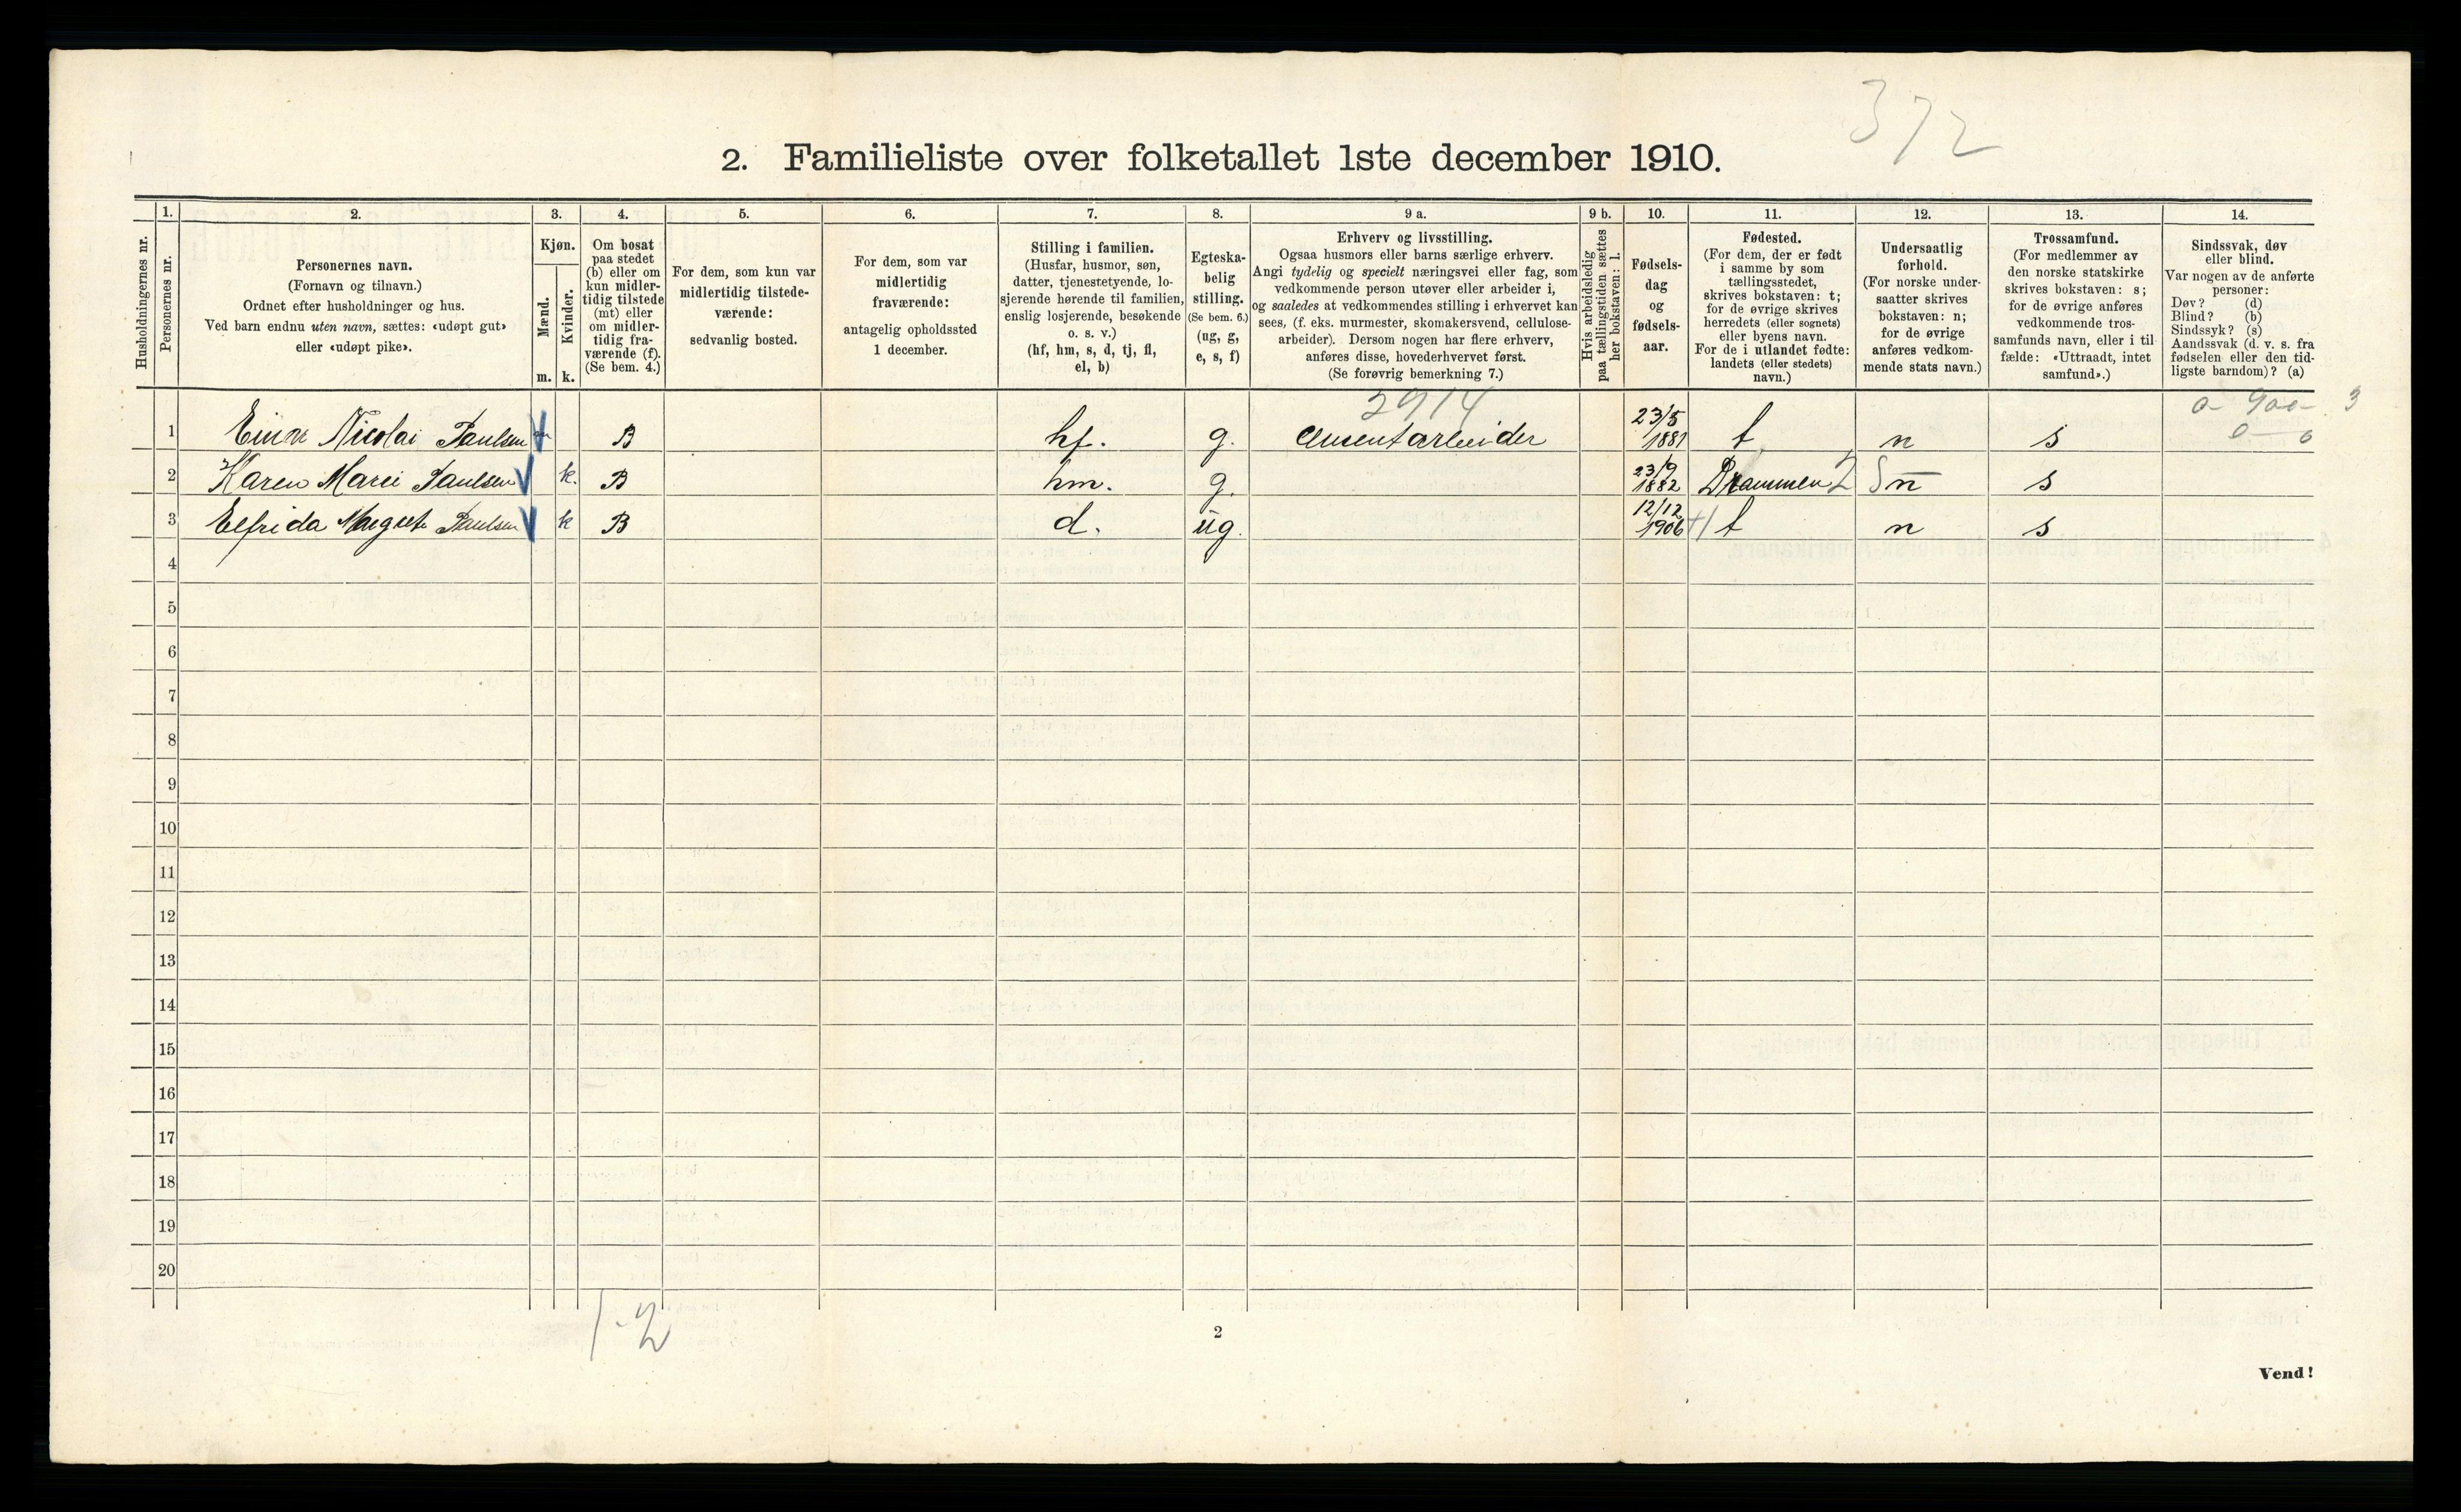 372
2. Familieliste over folketallet 1ste december 1910.
1. 2. 3. 4. 5. 6. 7. 8. 9 a. 9 b. 10. 11. 12. 13. 14.
Husholdningernes nr.
Personernes nr.
Personernes navn.
(Fornavn og tilnavn.)
Ordnet efter husholdninger og hus.
Ved barn endnu uten navn, sættes: «udøpt gut»
eller «udøpt pike».
Kjøn.
Mænd.
Kvinder.
m. k.
Om bosat
paa stedet
(b) eller om
kun midler-
tidig tilstede
(mt) eller
om midler-
tidig fra-
værende (f).
(Se bem. 4.)
For dem, som kun var
midlertidig tilstede-
værende:
sedvanlig bosted.
For dem, som var
midlertidig
fraværende:
antagelig opholdssted
1 december.
Stilling i familien.
(Husfar, husmor, søn,
datter, tjenestetyende, lo-
sjerende hørende til familien,
enslig losjerende, besøkende
o. s. v.)
(hf, hm, s, d, tj, fl,
el, b)
Egteska-
belig
stilling.
(Se bem. 6.)
(ug, g,
e, s, f)
Erhverv og livsstilling.
Ogsaa husmors eller barns særlige erhverv.
Angi tydelig og specielt næringsvei eller fag, som
vedkommende person utøver eller arbeider i,
og saaledes at vedkommendes stilling i erhvervet kan
sees, (f. eks. murmester, skomakersvend, cellulose-
arbeider). Dersom nogen har flere erhverv,
anføres disse, hovederhvervet først.
(Se forøvrig bemerkning 7.)
Hvis arbeidsledig
paa tællingstiden sættes
her bokstaven: l.
Fødsels-
dag
og
fødsels-
aar.
Fødested.
(For dem, der er født
i samme by som
tællingsstedet,
skrives bokstaven: t;
for de øvrige skrives
herredets (eller sognets)
eller byens navn.
For de i utlandet fødte:
landets (eller stedets)
navn.)
Undersaatlig
forhold.
(For norske under-
saatter skrives
bokstaven: n;
for de øvrige
anføres vedkom-
mende stats navn.)
Trossamfund.
(For medlemmer av
den norske statskirke
skrives bokstaven: s;
for de øvrige anføres
vedkommende tros-
samfunds navn, eller i til-
fælde: «Uttraadt, intet
samfund».)
Sindssvak, døv
eller blind.
Var nogen av de anførte
personer:
Døv? (d)
Blind? (b)
Sindssyk? (s)
Aandssvak (d. v. s. fra
fødselen eller den tid-
ligste barndom)? (a)
2914
0 - 900 - 3
0 - 0
1 Einar Nicolai Paulsen m B hf. g. Cementarbeider 23/5 1881 t n s
2 Karen Marei Paulsen k. B hm. g. 23/9 1882 Drammen n s
3 Elfrida Margrete Paulsen k B d. ug. 12/12 1906 t n s
4
5
6
7
8
9
10
11
12
13
14
15
16
17
18
19
20
1-2
2
Vend!